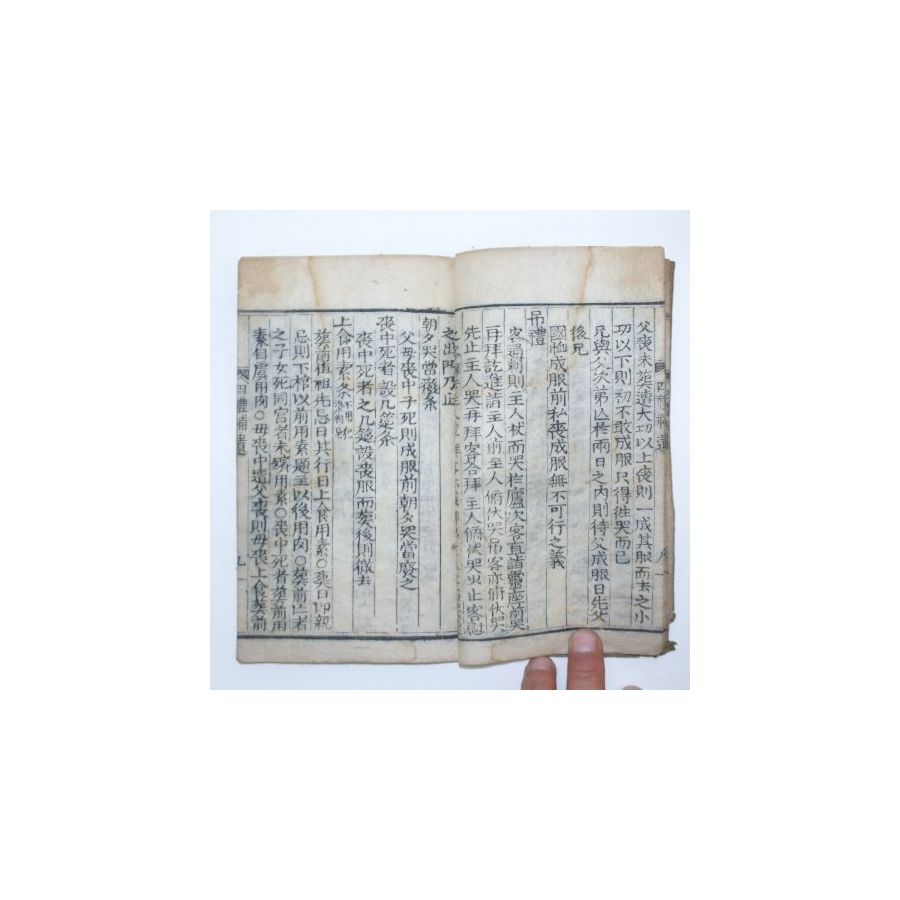 父喪未葬遭大功以上喪則一成其服而去之小
功以下則初不敢成服只得往哭而已
兄與父次弟亾於兩日之內則待父成服日先父
後兄
國恤成服前私喪成服無不可行之義
吊禮
客通刺則主人杖而哭於廬次客直詣靈座前哭
再拜訖進詣主人前主人俯伏哭客亦俯伏哭
先止主人哭再拜客答拜主人俯伏哭出止客
之出門乃止
朝夕哭當徹条
父母喪中子死則成服前朝夕哭當廢之
喪中死者設几筵条
喪中死者之几筵設喪服而葬後則徹去
上食用素条
葬前值祖先忌日其行日上食用素○葬日卽親
忌則下棺以前用素題主以後用肉○葬前亡者
之子女死同宮者未殯用素○喪中死者葬前用
素自虞用肉○母喪中遭父喪則母喪上食葬前
四禮補遺
九